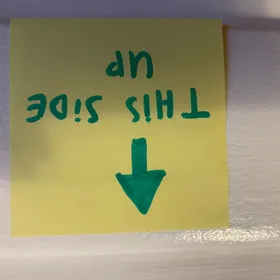 THIS SiDE
UP